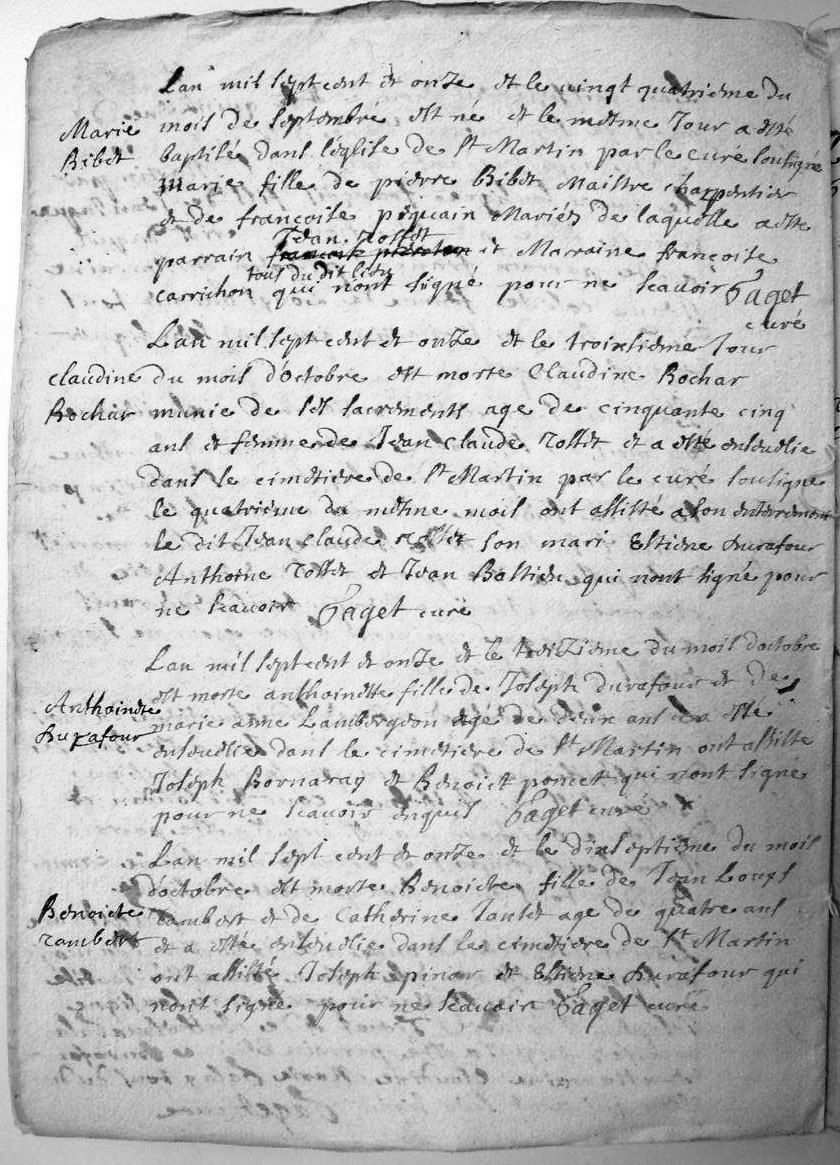 Lan mil septcent et onze et le vingt quatrieme du
Marie
Bibet
mois de septembre est né et le mesme Jour a esté
baptisé dans leglise de st Martin par le curé soubsigné
Marie fille de pierre Bibet Maistre charpentier
et de francoise piquain Mariés de laquelle a este
Jean rosset
parrain et Marraine francoise
tous du dit lieu
carrichon qui nont signé pour ne scavoir Gaget
curé
Lan mil septcent et onze et le troixsieme Jour
claudine
Rochar
du mois doctobre est morte Claudine Rochar
munie de ses sacrements age de cinquante cinq
ans et femme de Jean claude rosset et a esté ensevelie
dans le cimetiere de st Martin par le curé soubsigne
le quatrieme du mesme mois ont assisté a son enterrement
le dit Jean claude rosset son mari Estiene durafour
Anthoine rosset et Jean Bastien qui nont signé pour
ne scavoir Gaget curé
Lan mil septcent et onze et le treizieme du mois doctobre
Anthoinette
Durafour
est morte anthoinette fille de Joseph durafour et de
marie anne Lambergeon agé de deux ans et a este
ensevelie dans le cimetiere de st Martin ont assisté
Joseph Bornaray et Benoict pomet qui nont signé
pour ne scavoir enquis Gaget curé
Lan mil sept cent et onze et le dixseptieme du mois
Benoicte
rambert
doctobre est morte Benoicte fille de Jean Louys
rambert et de Catherine Jantet age de quatre ans
et a esté ensevelie dans le cimetiere de st Martin
ont assisté Joseph pinar et Estiene durafour qui
nont signé pour ne scavoir Gaget curé